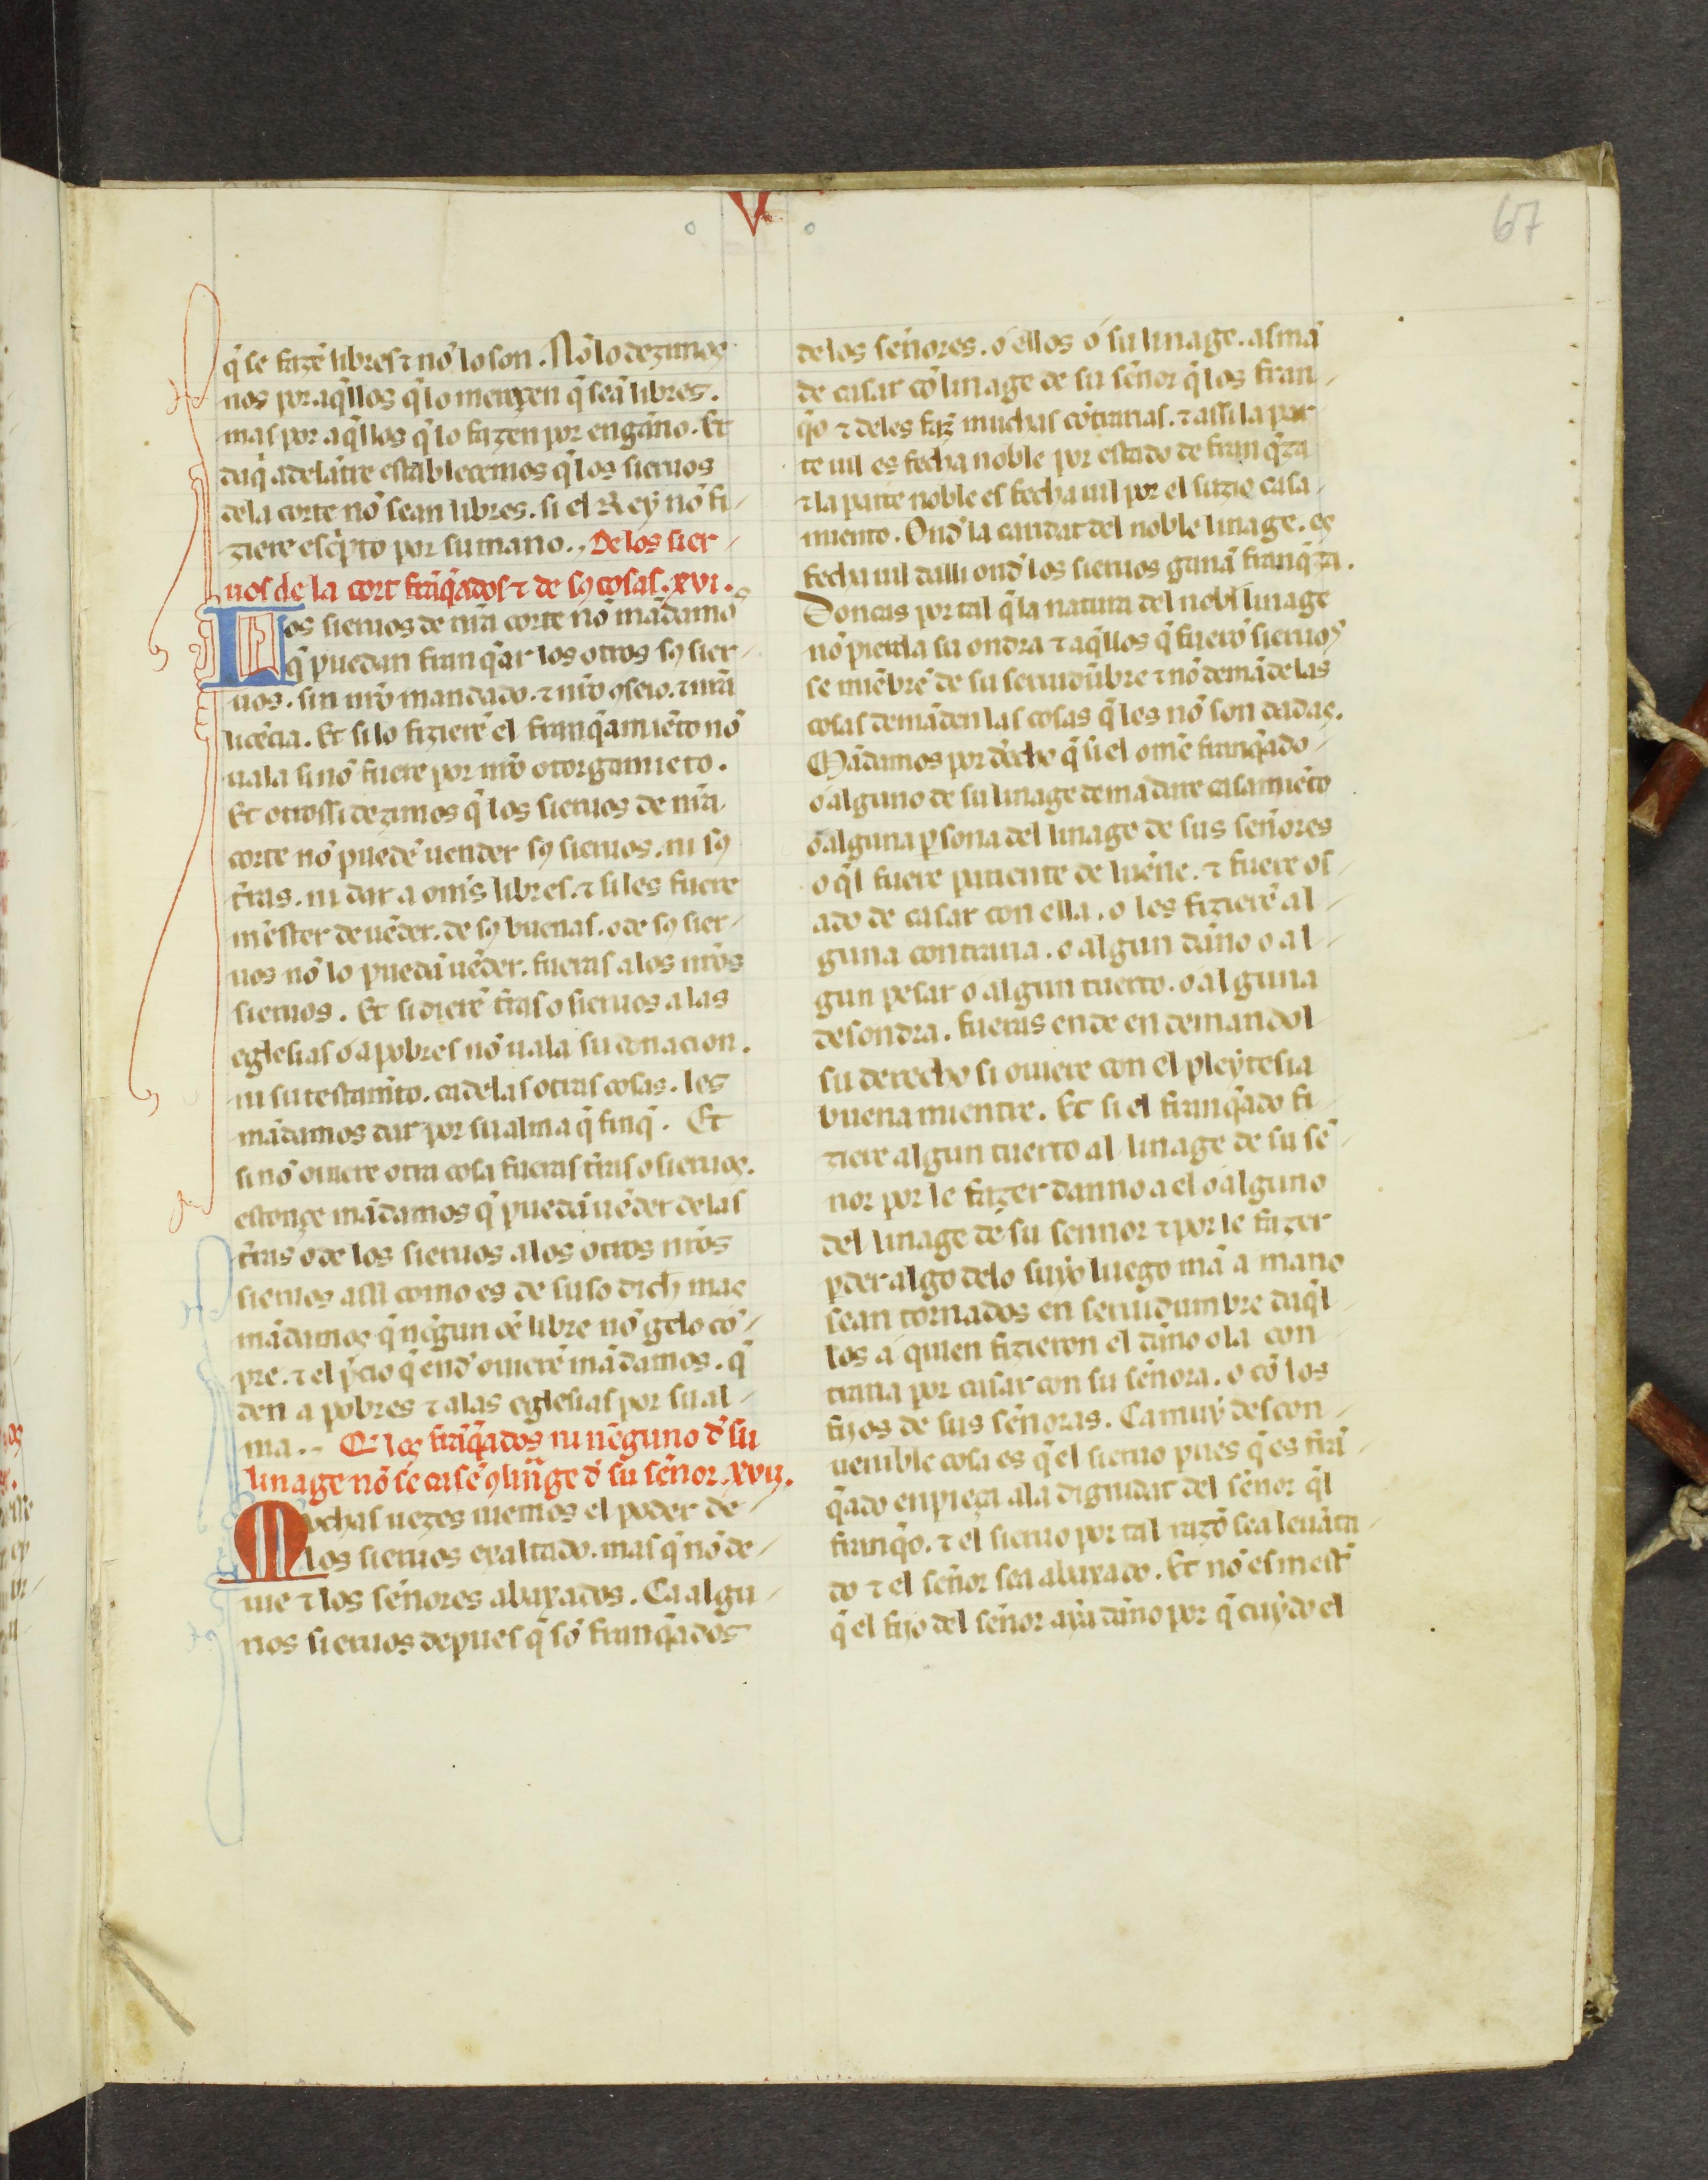 V
67
q̃ se fazẽ libres ⁊ nõ lo son. Nõ lo dezimos
nos por aq̃llos q̃ lo merezen q̃ seã libres.
mas por aq̃llos q̃ lo fazen por enganno. Et
daq̃ adelãtre establecemos q̃ los sieruos
dela corte nõ sean libres. si el Rey nõ fi-
ziere escͥpto por su mano. De los sier-
uos de la cort frãq̃ados ⁊ de sꝯ cosas. xvi.
Los sieruos de nr̃a corte nõ mãdamos
q̃ puedan franq̃ar los otros sꝯ sier-
uos. sin nr̃o mandado. ⁊ nr̃o ꝯseio. ⁊ nr̃a
licẽcia. Et si lo fizierẽ el franq̃amiẽto nõ
uala si nõ fuere por nr̃o otorgamieto.
Et otrossi dezimos q̃ los sieruos de nr̃a
corte nõ puedẽ uender sꝯ sieruos. ni sꝯ
tr̃ras. ni dar a om̃s libres. ⁊ si les fuere
mẽster de uẽder. de sꝯ buenas. o de sꝯ sier-
uos nõ lo puedã uẽder. fueras a los nr̃os
sieruos. Et si dierẽ tr̃ras o sieruos a las
eglesias o a pobres nõ uala su donacion.
ni su testam̃to. ca de las otras cosas. les
mãdamos dar por su alma q̃ finq̃. Et
si nõ ouiere otra cosa fueras tr̃ras o sieruos.
estonçe mãdamos q̃ puedã uẽder de las
tr̃ras o de los sieruos a los otros nr̃os
sieruos assi como es de suso dich̃ mas
mãdamos q̃ nẽgun oẽ libre nõ gelo cõ-
pre. ⁊ el p̃cio q̃ end̃ ouierẽ mãdamos. q̃
den a pobres ⁊ a las eglesias por su al-
ma. Q̃ los frãq̃ados ni nẽguno d̃ su
linage nõ se casẽ ꝯ lin̄ge d̃ su sẽnor. xvii.
Mvchas uezes uiemos el poder de
los sieruos exaltado. mas q̃ nõ de-
uie ⁊ los sẽnores abaxados. Ca algu-
nos sieruos depues q̃ sõ franq̃ados
de los sẽnores. o ellos o su linage. asmã
de casar cõ linage de su sẽnor q̃ los fran-
q̃o ⁊ de les faz̃ muchas cõtrarias. ⁊ assi la par-
te uil es fecha noble por estado de franq̃za
⁊ la parte noble es fecha uil por el suzio casa-
miento. Ond̃ la caridat del noble linage. es
fecha uil dalli ond̃ los sieruos ganã franq̃za.
Doncas por tal q̃ la natura del nobl̃ linage
nõ pierda su ondra ⁊ aq̃llos q̃ fuerõ sieruos
se miẽbrẽ de su seruidũbre ⁊ nõ demãde las
cosas demãden las cosas q̃ les nõ son dadas.
Mãdamos por d̃echo q̃ si el omẽ franq̃ado
o alguno de su linage demãdare casamiẽto
o alguna ꝑsona del linage de sus sẽnores
o q̃l fuere pariente de luẽne. ⁊ fuere os-
ado de casar con ella. o les fizierẽ al-
guna contraria. o algun dãno o al-
gun pesar o algun tuerto. o alguna
desondra. fueras ende en demandol
su derecho si ouiere con el pleytesia
buena mientre. Et si el franq̃ado fi-
ziere algun tuerto al linage de su sẽ-
nor por le fazer danno a el o alguno
del linage de su sennor ⁊ por le fazer
ꝑder algo delo suyo luego mã a mano
sean tornados en seruidumbre daq̃l-
los a quien fizieron el dãno o la con-
traria por casar con su sẽnora. o cõ los
fijos de sus sẽnoras. Ca muy descon-
uenible cosa es q̃ el sieruo pues q̃ es frã-
q̃ado enpieça a la dignidat del sẽnor q̃l
franq̃o. ⁊ el sieruo por tal razõ sea leuãta-
do ⁊ el sẽnor sea abaxado. Et nõ es mest̃
q̃ el fijo del sẽnor aya dãno por q̃ cuydo el